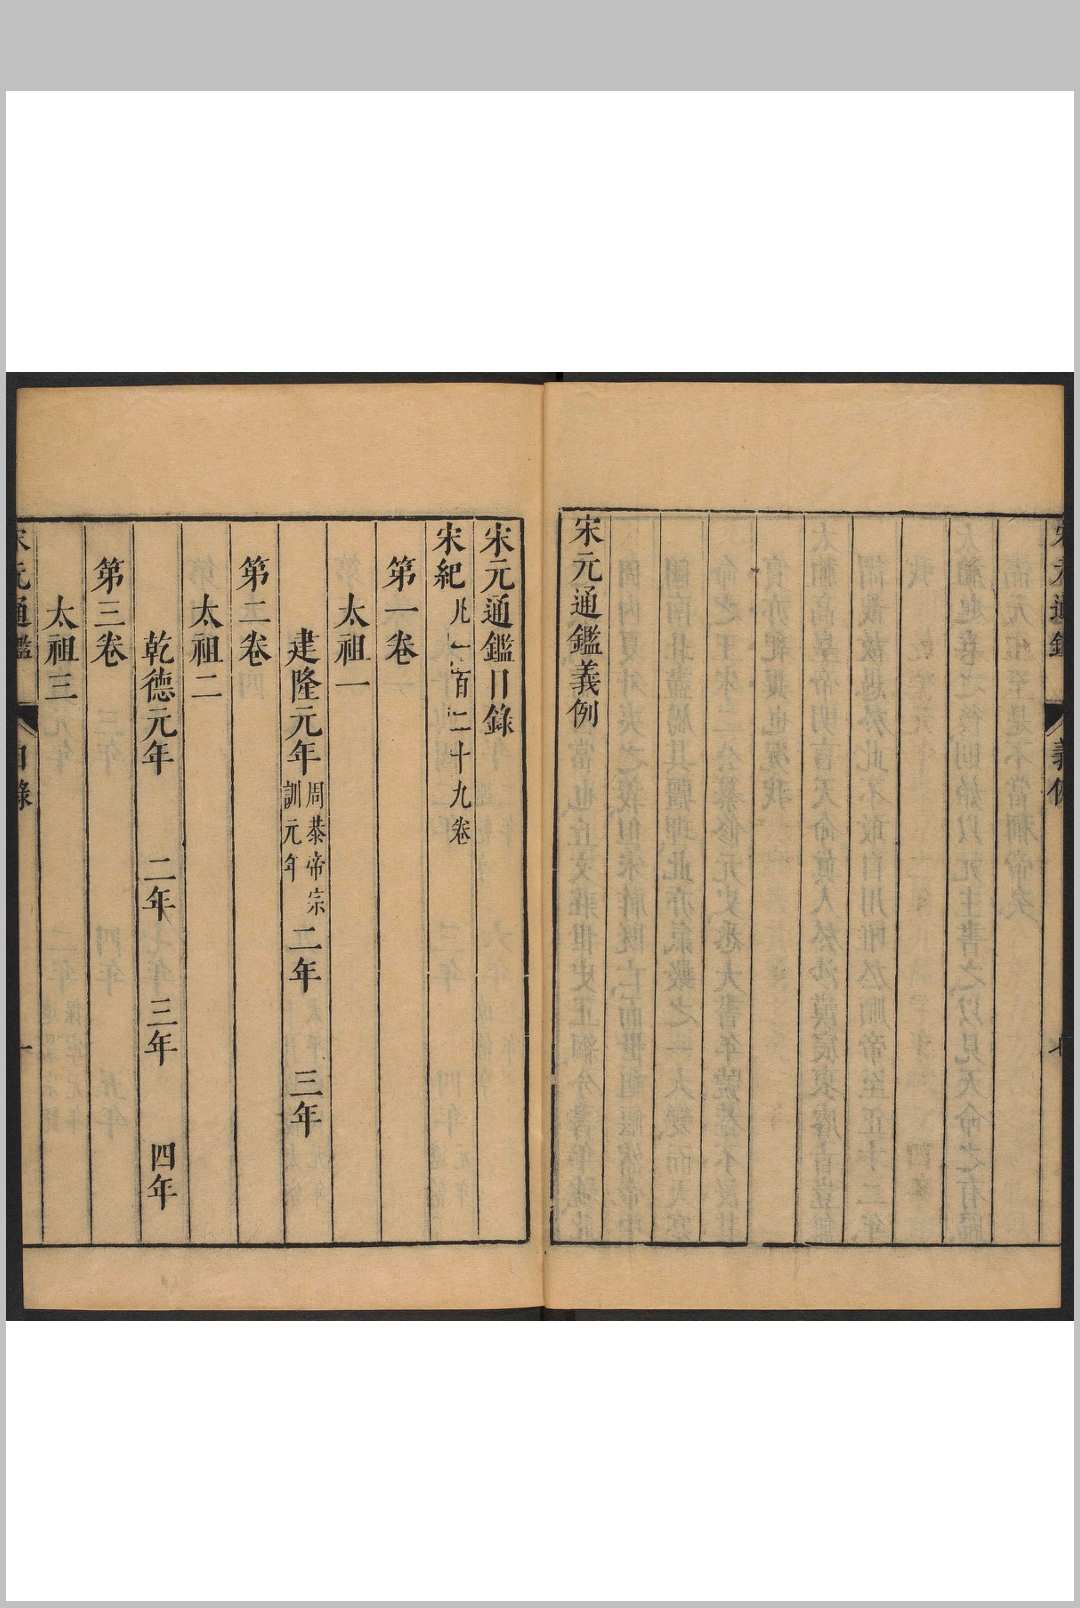 宋元通鑑 義例 七
宋元通鑑義例
宋元通鑑目錄
宋紀凡一百二十九卷
第一卷
太祖一
建隆元年周恭帝宗訓元年 二年 三年
第二卷
太祖二
乾德元年 二年 三年 四年
第三卷
太祖三
宋元通鑑 目錄 一